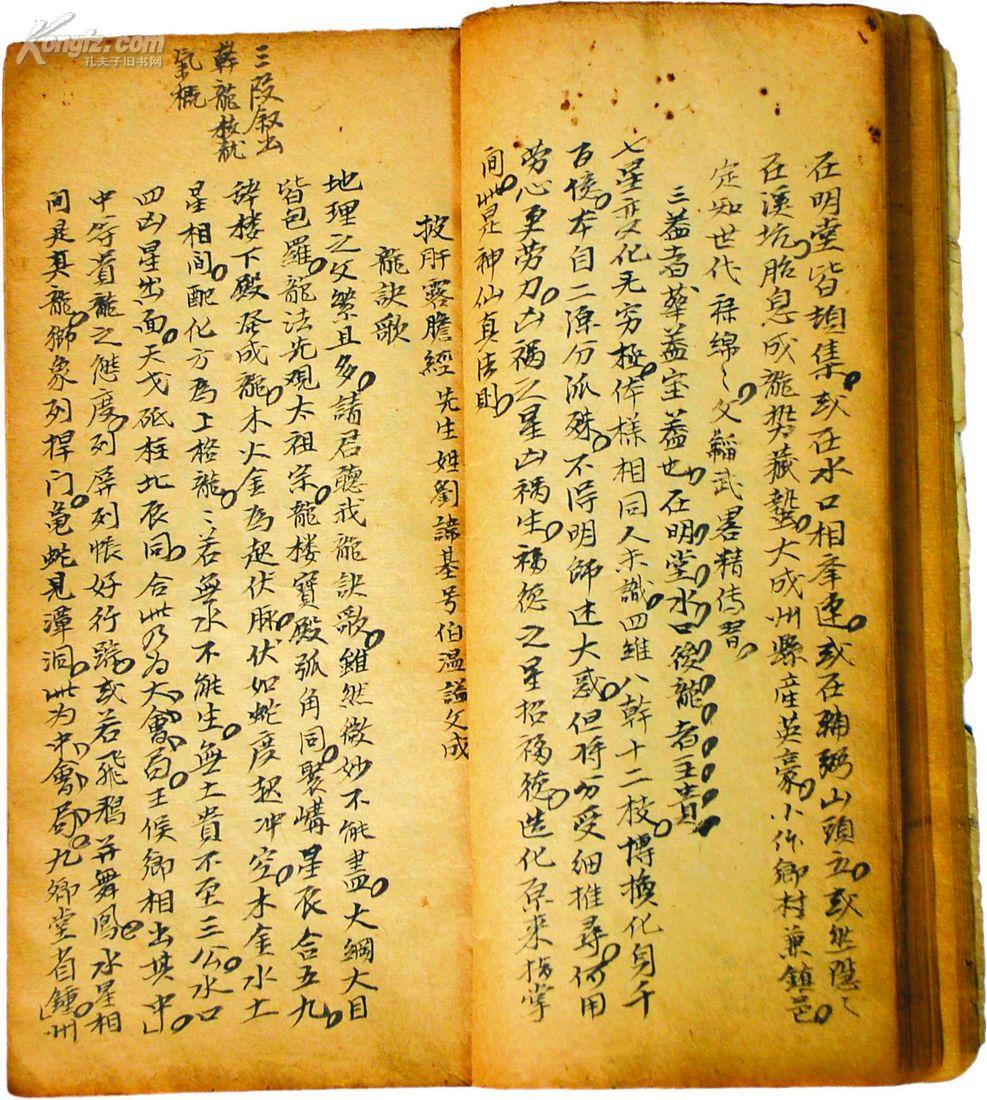 Kongfz.com
孔夫子旧书网
在明堂皆坦集或在水口相牽連或在輔弼山頭立或然隱々
在溪坑胎息成龍獎藏蟄大成州縣產英豪小作鄉村兼鎮邑
定知世代祿綿々文韜武畧精傳習
三蓋者華蓋宝蓋也在明堂水口後龍者主貴
七星变化无穷極体樣相同人未識四維八幹十二枝博換化身千
百億本自二源分派殊不得明師述大惑但将分受細推尋何用
劳心更劳力凶禍之星凶禍生福德之星招福德造化原来指掌
間此是神仙真法則
披肝露膽經 先生姓劉諱基号伯溫謚文成
龍訣歌
三段叙出
幹龍枝龍
氣概
地理之文繁且多請君聽我龍訣歌雖然微妙不能盡大綱大目
皆包羅龍法先观太祖宗龍楼寶殿弧角同聚構星辰合五九
辞楼下殿登成龍木火金為起伏脉伏如蛇度起冲空木金水土
星相間配化方為上格龍々若無水不能生無土貴不至三公水口
四凶星出面天戈砥柱北辰同合此乃為大會局王侯卿相出其中
中等貴龍之態度列屏列帳好行蹤或若飛鵝并舞鳳水星相
間是真龍獅象列捍门龜蛇見潭洞此为中會局九卿堂省鍾州